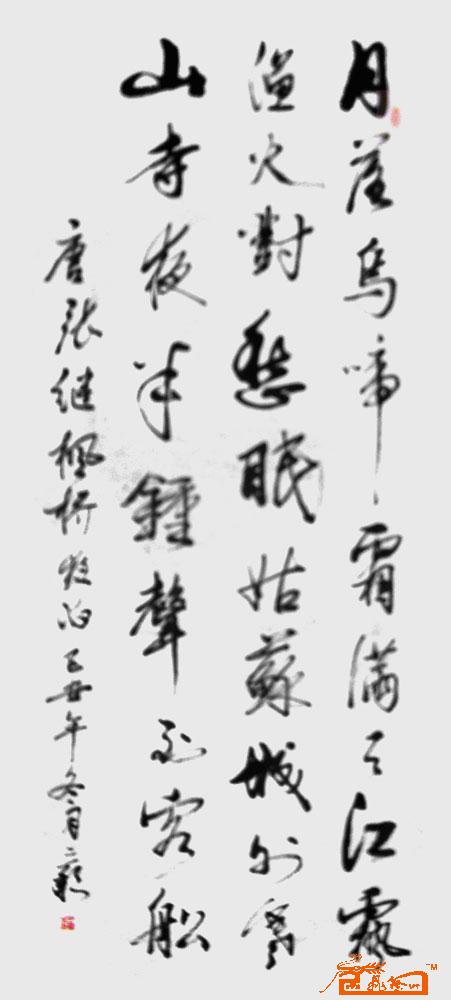 月落烏啼霜滿天江
漁火對愁眠姑蘇城外寒
山寺夜半鍾聲到客船
唐張繼楓橋夜泊己丑年冬月